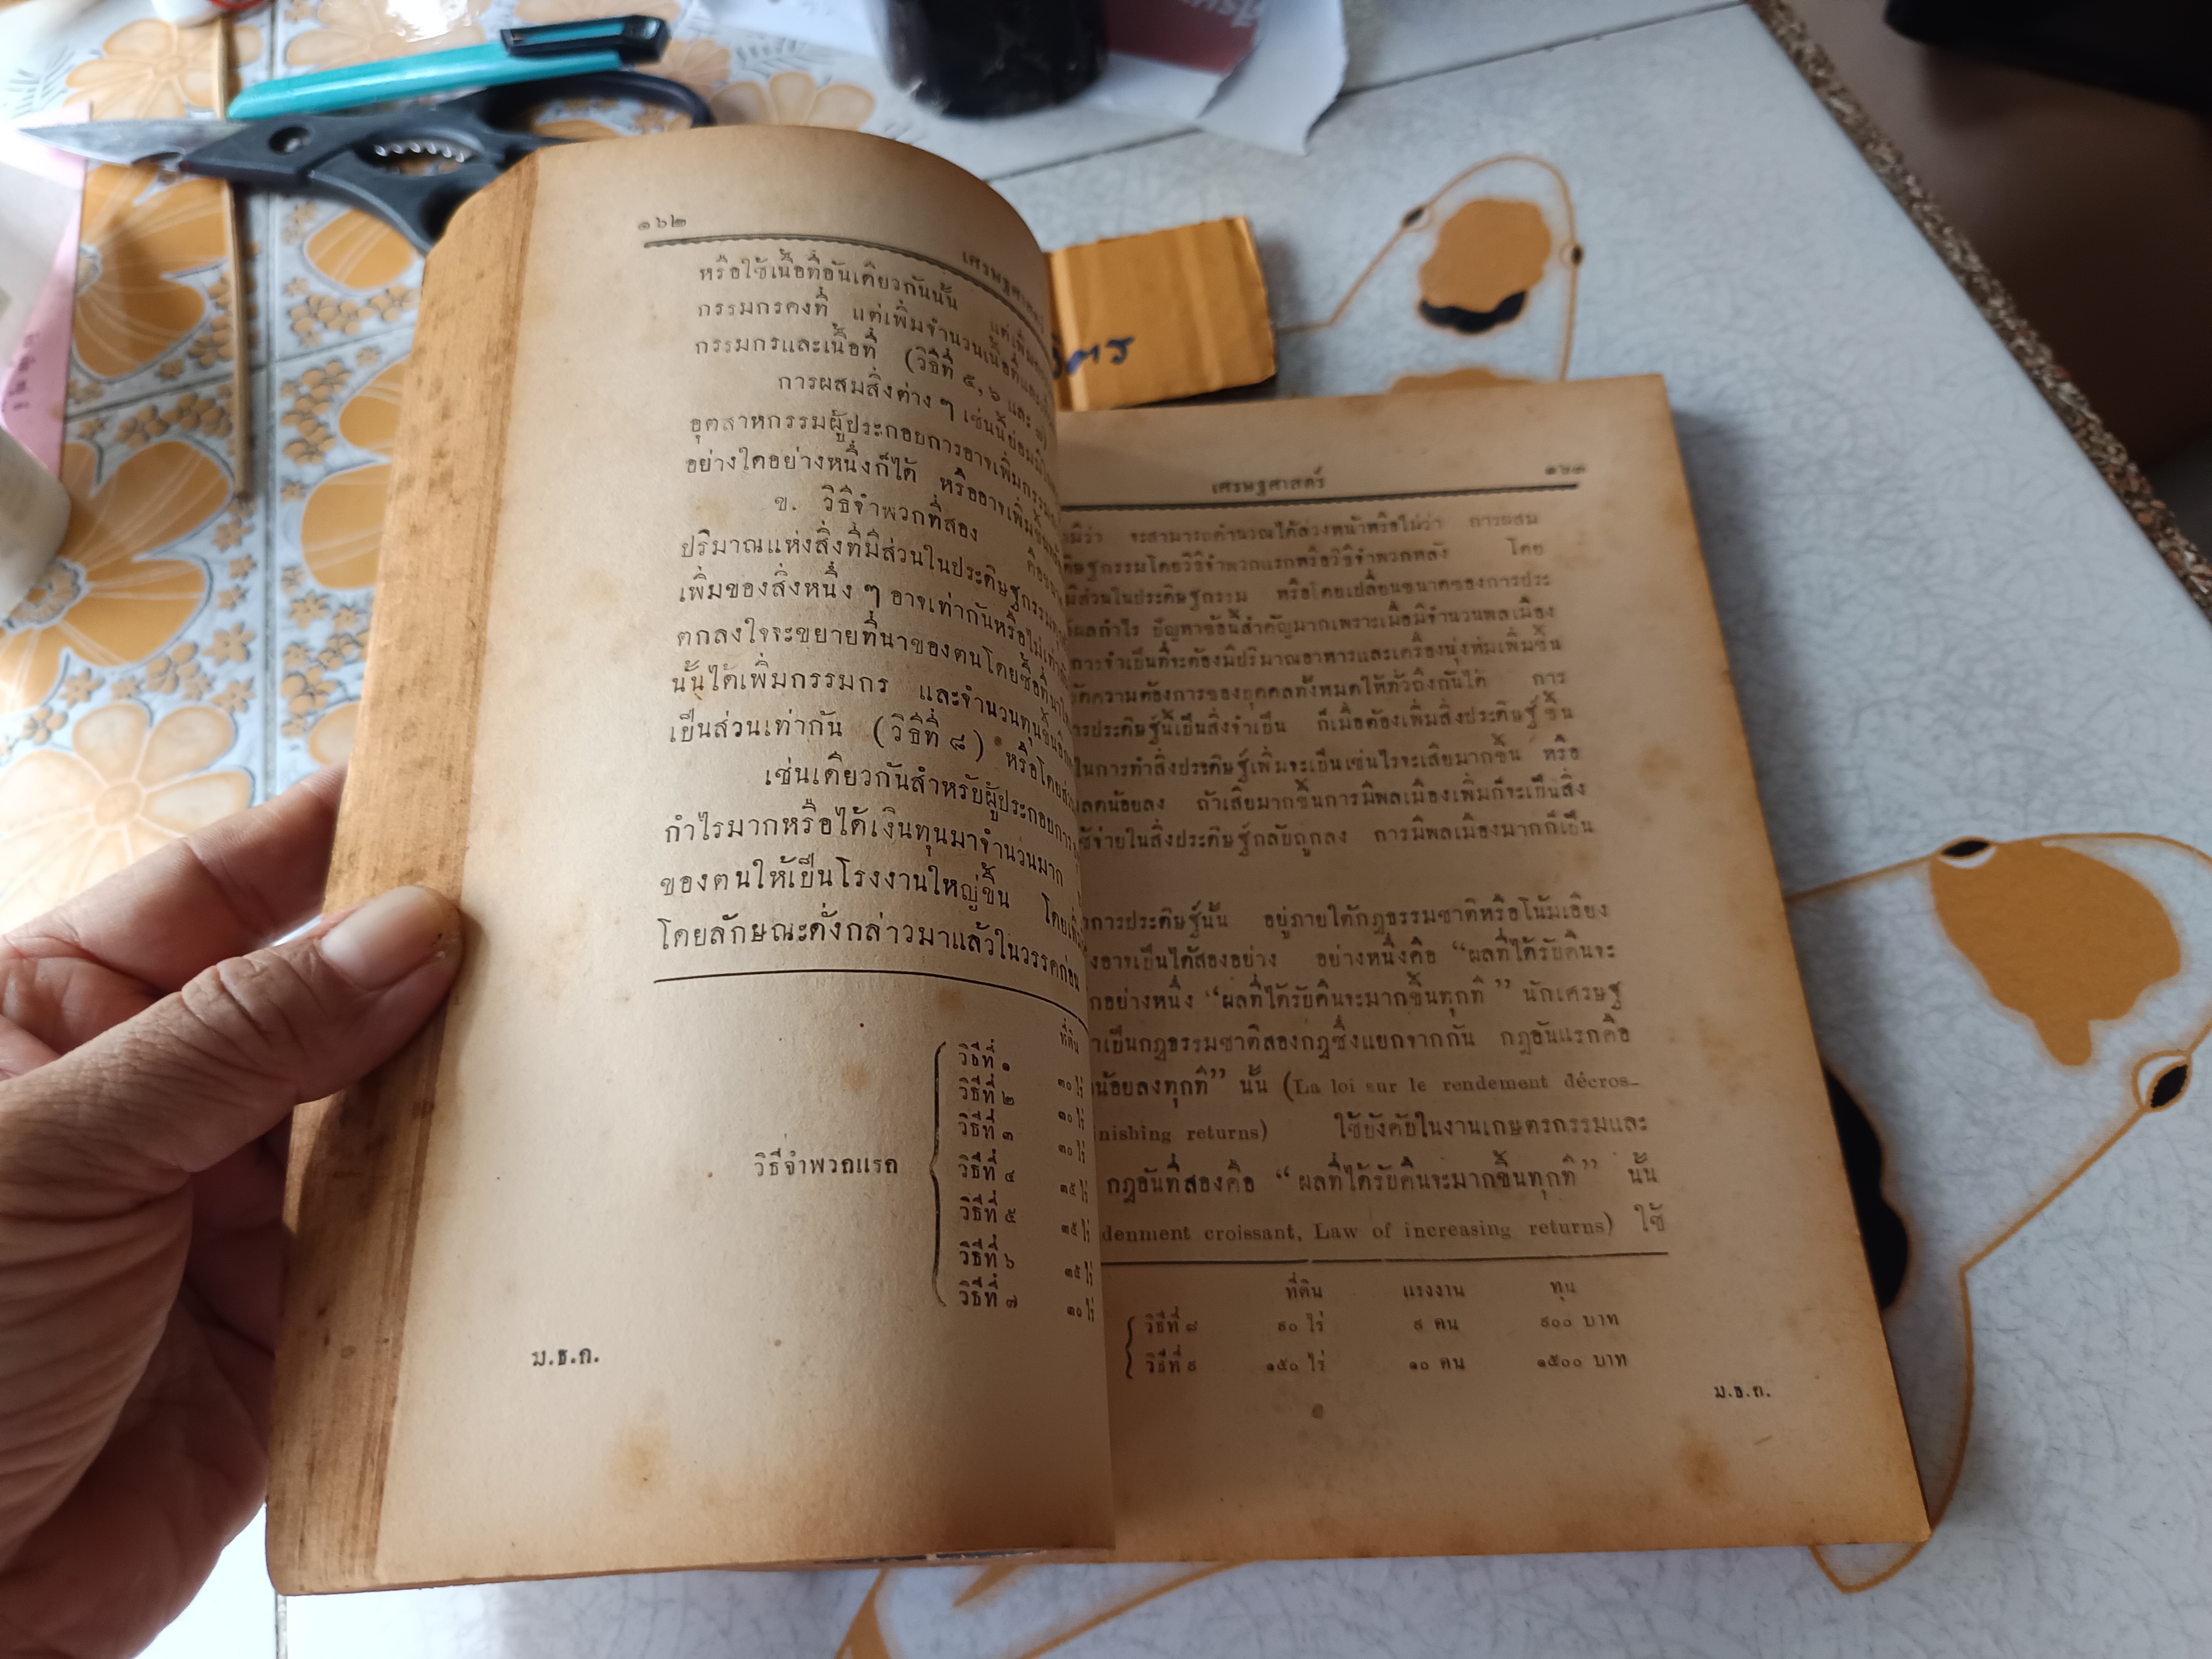 ๑๖๒
เศรษฐศาสตร์
หรือใช้เนื้อที่อันเดียวกันนั้น แต่เพิ่ม
กรรมกรคงที่ แต่เพิ่มจำนวนเนื้อที่และ
กรรมกรและเนื้อที่ (วิธีที่ ๕, ๖ และ ๗)
การผสมสิ่งต่าง ๆ เช่นนี้ย่อมมี
อุตสาหกรรมผู้ประกอบการอาจเพิ่มกรรมกร
อย่างใดอย่างหนึ่งก็ได้ หรืออาจเพิ่มขึ้น
ข. วิธีจำพวกที่สอง คือ
ปริมาณแห่งสิ่งที่มีส่วนในประดิษฐกรรม
เพิ่มของสิ่งหนึ่ง ๆ อาจเท่ากันหรือไม่เท่ากัน
ตกลงใจจะขยายที่นาของตนโดยซื้อที่นา
นั้นได้เพิ่มกรรมกร และจำนวนทุนขึ้นอีก
เป็นส่วนเท่ากัน (วิธีที่ ๘) หรือโดย
เช่นเดียวกันสำหรับผู้ประกอบการ
กำไรมากหรือได้เงินทุนมาจำนวนมาก
ของตนให้เป็นโรงงานใหญ่ขึ้น โดยเพิ่ม
โดยลักษณะดั่งกล่าวมาแล้วในวรรคก่อน
ที่ดิน
วิธีที่ ๑ ๓๐ ไร่
วิธีที่ ๒ ๓๐ ไร่
วิธีที่ ๓ ๓๐ ไร่
วิธีจำพวกแรก วิธีที่ ๔ ๓๕ ไร่
วิธีที่ ๕ ๓๕ ไร่
วิธีที่ ๖ ๓๕ ไร่
วิธีที่ ๗ ๓๐ ไร่
ม.ธ.ก.
เศรษฐศาสตร์ ๑๖๓
มีว่า จะสามารถคำนวณได้ล่วงหน้าหรือไม่ว่า การผสม
ดิษฐกรรมโดยวิธีจำพวกแรกหรือวิธีจำพวกหลัง โดย
มีส่วนในประดิษฐกรรม หรือโดยเปลี่ยนขนาดของการประ
ผลกำไร ปัญหาข้อนี้สำคัญมากเพราะเมื่อมีจำนวนพลเมือง
การจำเป็นที่จะต้องมีปริมาณอาหารและเครื่องนุ่งห่มเพิ่มขึ้น
ความต้องการของบุคคลทั้งหมดให้ทั่วถึงกันได้ การ
ารประดิษฐ์นี้เป็นสิ่งจำเป็น ก็เมื่อต้องเพิ่มสิ่งประดิษฐ์ขึ้น
ในการทำสิ่งประดิษฐ์เพิ่มจะเป็นเช่นไรจะเสียมากขึ้น หรือ
ลดน้อยลง ถ้าเสียมากขึ้นการมีพลเมืองเพิ่มก็จะเป็นสิ่ง
ช้จ่ายในสิ่งประดิษฐ์กลับถูกลง การมีพลเมืองมากก็เป็น
การประดิษฐ์นั้น อยู่ภายใต้กฎธรรมชาติหรือโน้มเอียง
งอาจเป็นได้สองอย่าง อย่างหนึ่งคือ “ผลที่ได้รับคืนจะ
กอย่างหนึ่ง “ผลที่ได้รับคืนจะมากขึ้นทุกที” นักเศรษฐ
าเป็นกฎธรรมชาติสองกฎซึ่งแยกจากกัน กฎอันแรกคือ
น้อยลงทุกที” นั้น (La loi sur le rendement décros-
nishing returns) ใช้บังคับในงานเกษตรกรรมและ
กฎอันที่สองคือ “ผลที่ได้รับคืนจะมากขึ้นทุกที” นั้น
denment croissant, Law of increasing returns) ใช้
ที่ดิน แรงงาน ทุน
วิธีที่ ๘ ๙๐ ไร่ ๙ คน ๙๐๐ บาท
วิธีที่ ๙ ๑๕๐ ไร่ ๑๐ คน ๑๕๐๐ บาท
ม.ธ.ก.